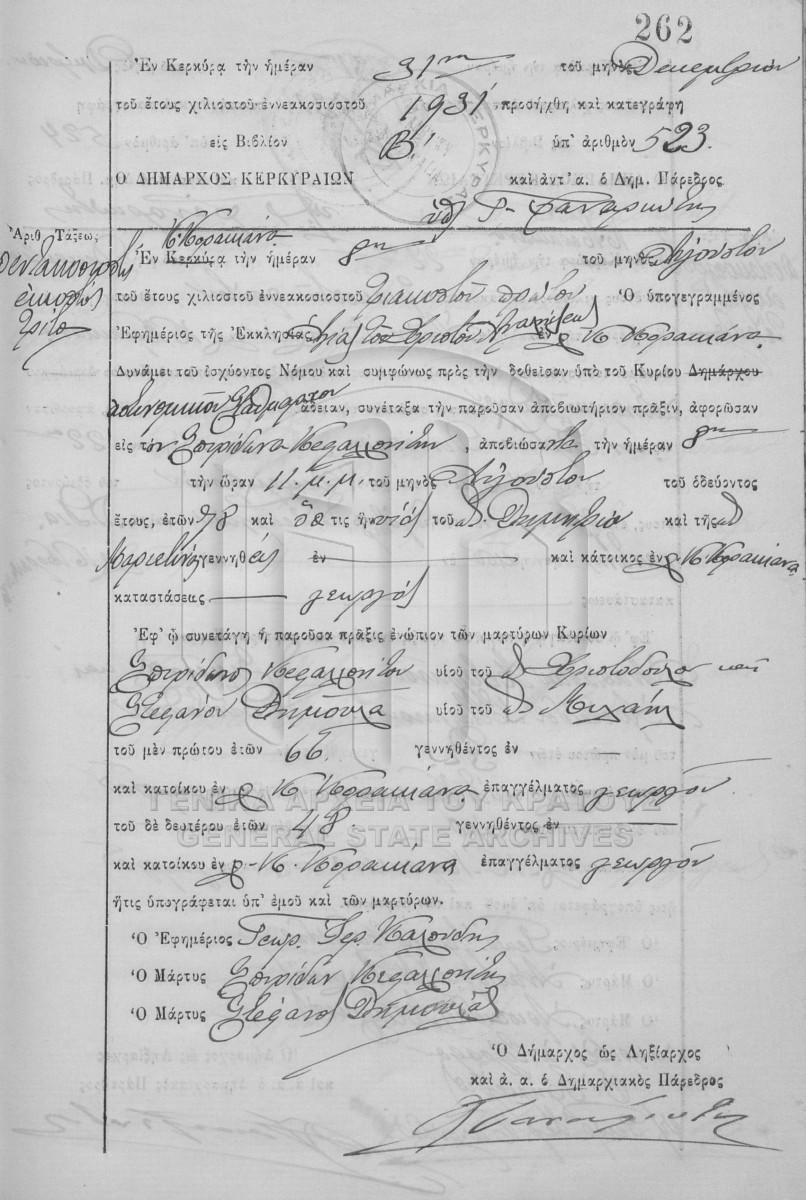 262
Ἐν Κερκύρᾳ τὴν ἡμέραν 31ην τοῦ μηνὸς Δεκεμβρίου
τοῦ ἔτους χιλιοστοῦ ἐννεακοσιοστοῦ 1931 προσήχθη καὶ κατεγράφη
εἰς Βιβλίον Β! ὑπ' ἀριθμὸν 523.
Ο ΔΗΜΑΡΧΟΣ ΚΕΡΚΥΡΑΙΩΝ καὶ ἀντ' α. ὁ Δημ. Πάρεδρος
Ἀριθ. Τάξεως
πεντακοσιοστὸς
εἰκοστὸς
τρίτος
Κ. Κορακιάνα
Ἐν Κερκύρᾳ τὴν ἡμέραν 8ην τοῦ μηνὸς Αὐγούστου
τοῦ ἔτους χιλιοστοῦ ἐννεακοσιοστοῦ τριακοστοῦ πρώτου Ὁ ὑπογεγραμμένος
Ἐφημέριος τῆς Ἐκκλησίας τοῦ Χριστοῦ ἐν Κ. Κορακιάνα
Δυνάμει τοῦ ἰσχύοντος Νόμου καὶ συμφώνως πρὸς τὴν δοθεῖσαν ὑπὸ τοῦ Κυρίου Δημάρχου
ἀστυνομικοῦ Σταθμάρχου ἄδειαν, συνέταξα τὴν παροῦσαν ἀποβιωτήριον πρᾶξιν, ἀφορῶσαν
εἰς τὸν Σπυρίδωνα Κεφαλλονίτην, ἀποβιώσαντα τὴν ἡμέραν 8ην
τὴν ὥραν 11 μ.μ. τοῦ μηνὸς Αὐγούστου τοῦ ὁδεύοντος
ἔτους, ἐτῶν 78 καὶ ὅστις ἦν υἱὸς τοῦ Δημητρίου καὶ τῆς
Μαριετίνας γεννηθεὶς ἐν — καὶ κάτοικος ἐν Κ. Κορακιάνα
καταστάσεως — γεωργὸς
Ἐφ' ᾧ συνετάγη ἡ παροῦσα πρᾶξις ἐνώπιον τῶν μαρτύρων Κυρίων
Σπυρίδωνος Κεφαλλονίτου υἱοῦ τοῦ Χριστοδούλου καὶ
Στεφάνου Δημουλᾶ υἱοῦ τοῦ Μιχαήλ
τοῦ μὲν πρώτου ἐτῶν 66 γεννηθέντος ἐν —
καὶ κατοίκου ἐν Κ. Κορακιάνα ἐπαγγέλματος γεωργοῦ
ΓΕΝΙΚΑ ΑΡΧΕΙΑ ΤΟΥ ΚΡΑΤΟΥΣ
τοῦ δὲ δευτέρου ἐτῶν 48 γεννηθέντος ἐν —
GENERAL STATE ARCHIVES
καὶ κατοίκου ἐν Κ. Κορακιάνα ἐπαγγέλματος γεωργοῦ
ἥτις ὑπογράφεται ὑπ' ἐμοῦ καὶ τῶν μαρτύρων.
Ὁ Ἐφημέριος Γεωρ. Καλούδης
Ὁ Μάρτυς Σπυρίδων Κεφαλλονίτης
Ὁ Μάρτυς Στέφανος Δημουλᾶς
Ὁ Δήμαρχος ὡς Ληξίαρχος
καὶ ἀ. α. ὁ Δημαρχιακὸς Πάρεδρος